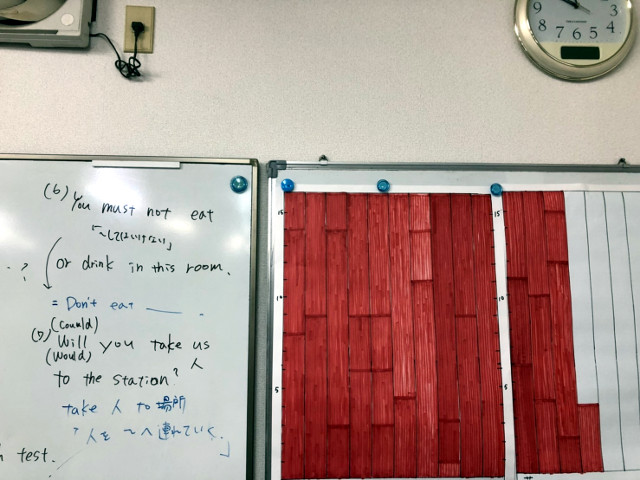 (6) You must not eat
「~してはいけない」
or drink in this room.
= Don't eat ___ .
(Could)
(7) Will you take us
(Would)
to the station? 人
take 人 to 場所
「人を~へ連れていく。」
test.
15
10
5
15
10
5
9
8
7
6
5
4
3